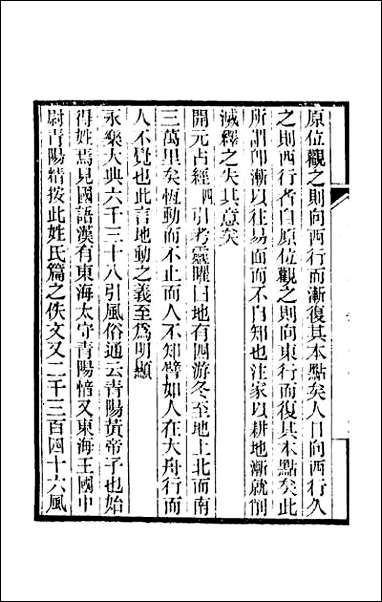 原位觀之則向西行而漸復其本點矣人目向西行久
之則西行者自原位觀之則向東行而復其本點矣此
所謂仰漸以往易面而不自知也注家以耕地漸就削
滅釋之失其意矣
開元占經四引考靈曜曰地有四游冬至地上北而南
三萬里矣恆動而不止而人不知譬如人在大舟行而
人不覺也此言地動之義至爲明顯
永樂大典六千三十八引風俗通云青陽黃帝子也始
得姓焉見國語漢有東海太守青陽愔又東海王國中
尉青陽精按此姓氏篇之佚文又二千三百四十六風